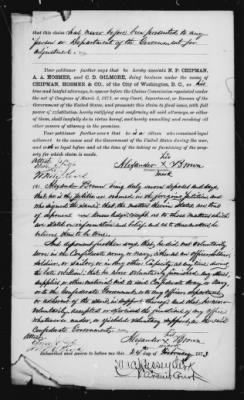 that this claim has never before been presented to any
person or Department of the Government for
adjustment
Your petitioner further says that he hereby appoints N. P. CHIPMAN,
A. A. HOSMER, and C. D. GILMORE, doing business under the name of
CHIPMAN, HOSMER & CO., of the City of Washington, D. C., as his
true and lawful attorneys, to appear before the Claims Commissioners appointed under
the act of Congress of March 3, 1871, or any Court, Department, or Bureau of the
Government of the United States, and prosecute this claim to final issue, with full
power of substitution, hereby ratifying and confirming all said attorneys, or either
of them, shall lawfully do in virtue hereof, and hereby annulling and revoking all
other powers of attorney in the premises.
Your petitioner further says that he is a citizen who remained loyal
to the cause and the Government of the United States during the war,
and was so loyal before and at the time of the taking or furnishing of the prop-
erty for which claim is made.
Attest his
Alexander X Brown
mark
Alexander Brown being duly sworn deposes and says
that he is the petitioner named in the foregoing petition and
who signed the same; that the matters therein stated are true
of deponent's own knowledge except as to those matters which
are stated on information and belief, and as to those matters he
believes them to be true.
And deponent further says that he did not voluntarily
serve in the Confederate army or navy, either as an officer,
soldier, or sailor, or in any other capacity, at any time during
the late rebellion; that he never voluntarily furnished any stores,
supplies, or other material aid to said Confederate Army or Navy,
or to the Confederate Government, or to any officer, department,
or adherent of the same in support thereof; and that he never
voluntarily accepted or exercised the functions of any office
whatsoever under, or yielded voluntary support to, the said
Confederate Government.
Attest: his
Alexander X Brown
mark
Subscribed and sworn to before me this 24 of February 1873
Clerk
Circuit Court